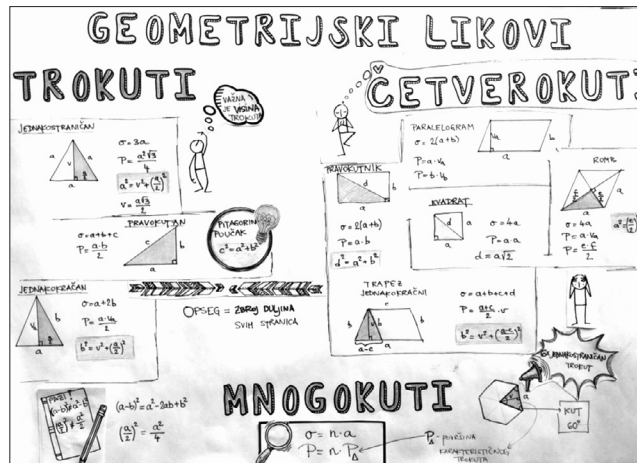 GEOMETRIJSKI LIKOVI
TROKUTI
VAŽNA
JE VISINA
TROKUTA
JEDNAKOSTRANIČAN
a
v
a
a
σ = 3a
P = a²√3/4
a² = v² + (a/2)²
v = a√3/2
PRAVOKUTAN
σ = a+b+c
P = a·b/2
c
b
a
PITAGORIN
POUČAK
c² = a² + b²
JEDNAKOKRAČAN
b
b
a
σ = a+2b
P = a·vₐ/2
b² = v² + (a/2)²
OPSEG = ZBROJ DULJINA
SVIH STRANICA
PAZI!
(a-b)² ≠ a²-b²
(a/2)² ≠ a²/2
(a-b)² = a² - 2ab + b²
(a/2)² = a²/4
ČETVEROKUTI
PARALELOGRAM
σ = 2(a+b)
P = a·vₐ
P = b·v_b
vₐ
b
a
PRAVOKUTNIK
d
b
a
σ = 2(a+b)
P = a·b
d² = a² + b²
KVADRAT
d
a
a
σ = 4a
P = a·a
d = a√2
ROMB
a
σ = 4a
P = a·vₐ
P = e·f/2
TRAPEZ
JEDNAKOKRAČNI
b
v
b
a-c
a
σ = a+b+c+d
P = a+c/2 · v
b² = v² + (a-c/2)²
JEDNAKOSTRANIČAN
TROKUT
MNOGOKUTI
σ = n·a
P = n·P_Δ
P_Δ - POVRŠINA
KARAKTERISTIČNOG
TROKUTA
a
KUT
60°